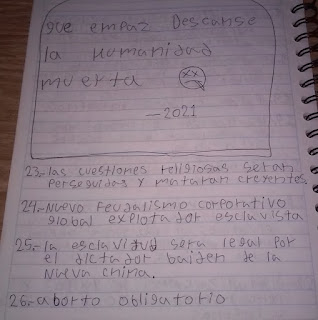 que empaz Descanse
la humanidad
muerta
XX
—2021
23-las cuestiones religiosas seran
perseguidas y mataran creyentes.
24-Nuevo feudalismo corporativo
global explotador esclavista
25-la esclavitud sera legal por
el dictador baiden de la
nueva china.
26-aborto obligatorio